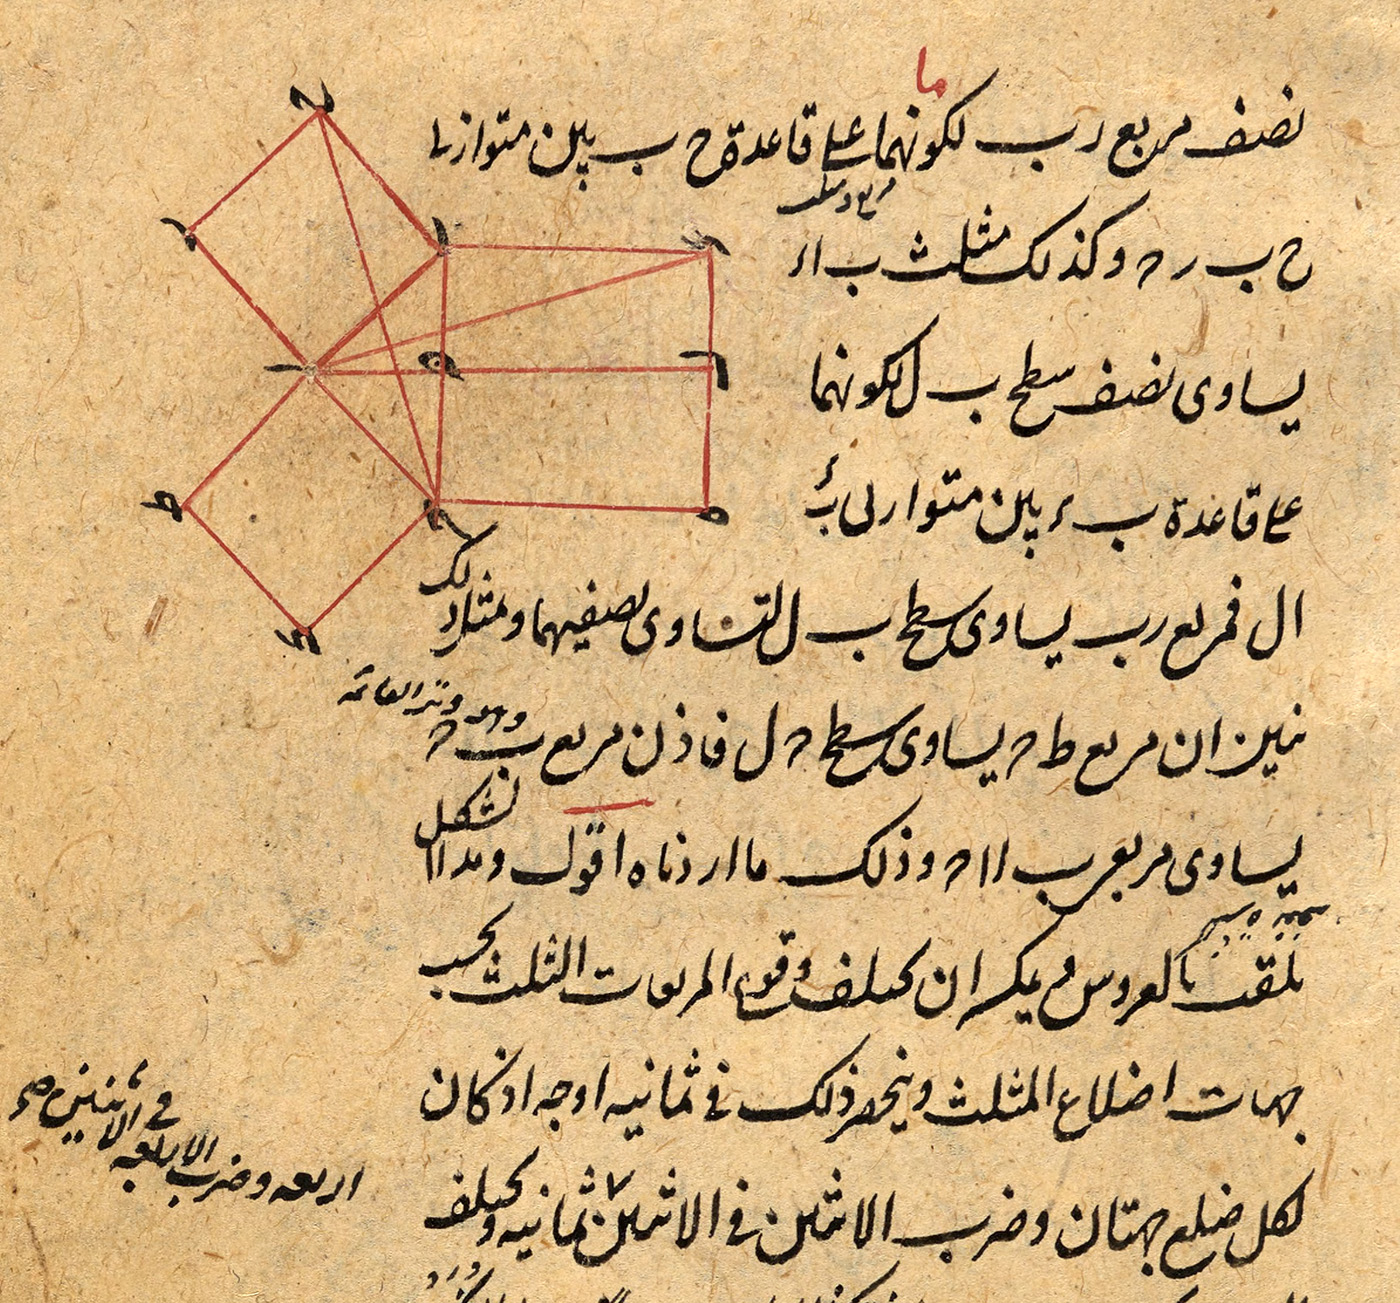 نصف مربع ر ب لكونهما على قاعدة ح ب بين متوازيا
ما
مربع وسطح
ح ب ر ح وكذلك مثلث ب ا ء
يساوى نصف سطح ب ل لكونهما
على قاعدة ب ء بين متوازيى ب ء
ا ل فمربع ر ب يساوى سطح ب ل لتساوى نصفيهما ومثل ذلك
نبين ان مربع ط ح يساوى سطح ح ل فاذن مربع ب ح
وهو وتر القائمة
يساوى مربعى ب ا ا ح وذلك ما اردناه اقول وهذا الشكل
يلقب بالعروس و يمكن ان يختلف وقوع المربعات الثلث بحسب
جهات اضلاع المثلث وينحصر ذلك فى ثمانيه اوجه اذ كان
لكل ضلع جهتان وضرب الاثنين فى الاثنين ثمانيه ويختلف
فى الاثنين صح
اربعه وضرب الاربعه